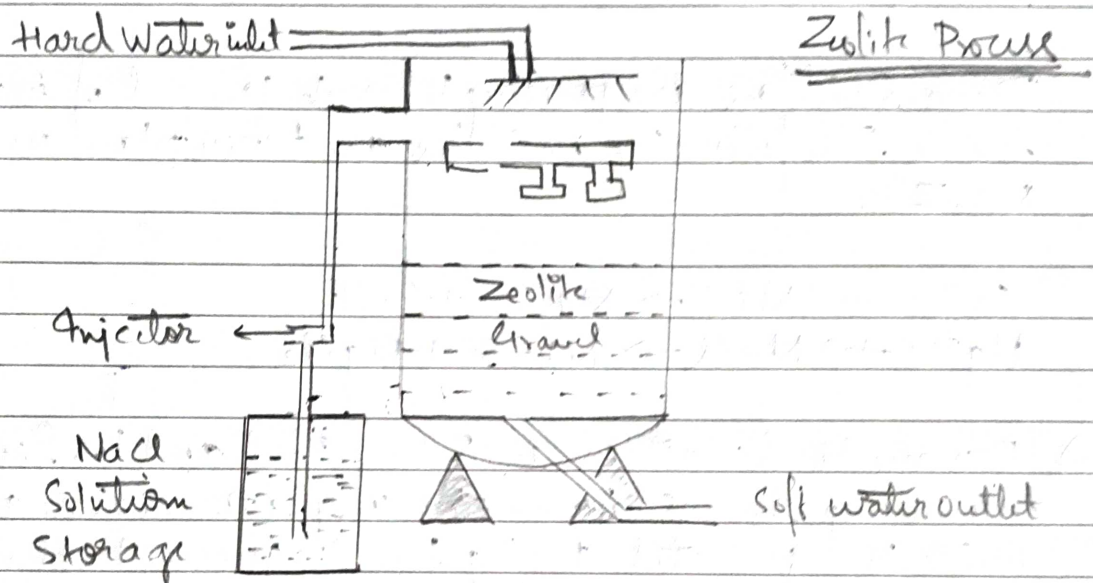 Hard Water inlet
Zeolite Process
Zeolite
Gravel
Injector
NaCl
Solution
Storage
Soft water outlet